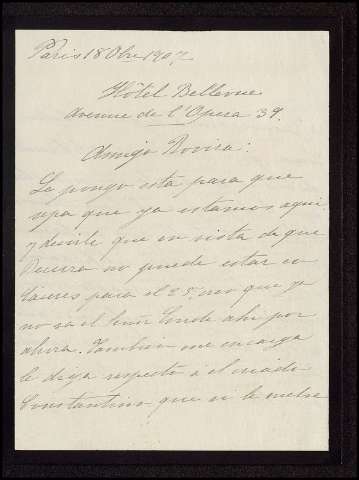 Paris 18 Obre 1907.
Hôtel Bellevue
Avenue de l'Opera 39.
Amigo Rovira:
Le pongo esta para que
sepa que ya estamos aqui
y decirle que en vista de que
no puede estar en
para el 25, no que ya
no va el Señor Conde ahi por
ahora. Tambien me encarga
le diga respecto á el criado
Constantino que si le